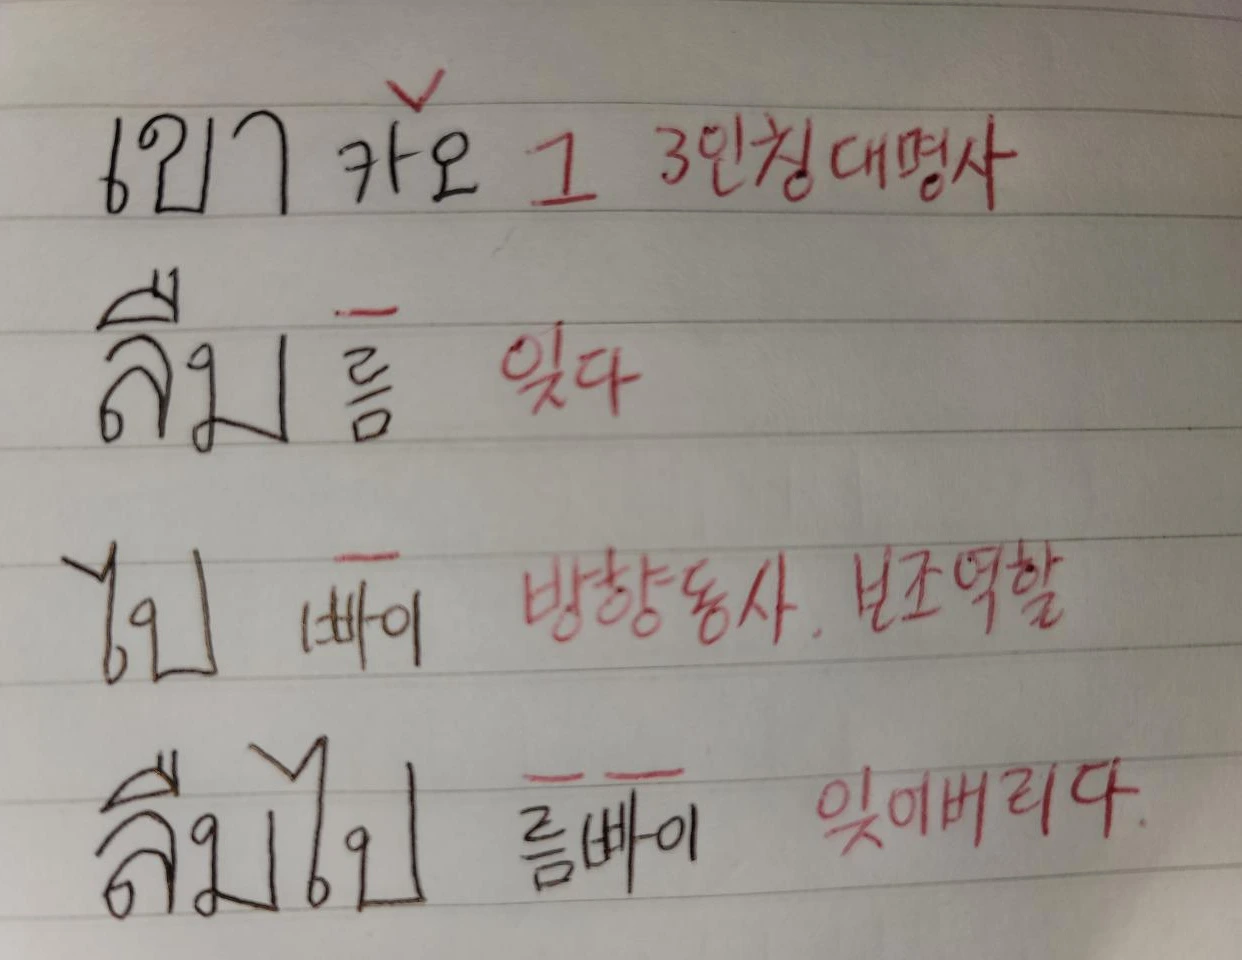 เขา 카오 그 3인칭대명사
ลืม 름 잊다
ไป 빠이 방향동사. 보조역할
ลืมไป 름빠이 잊어버리다.